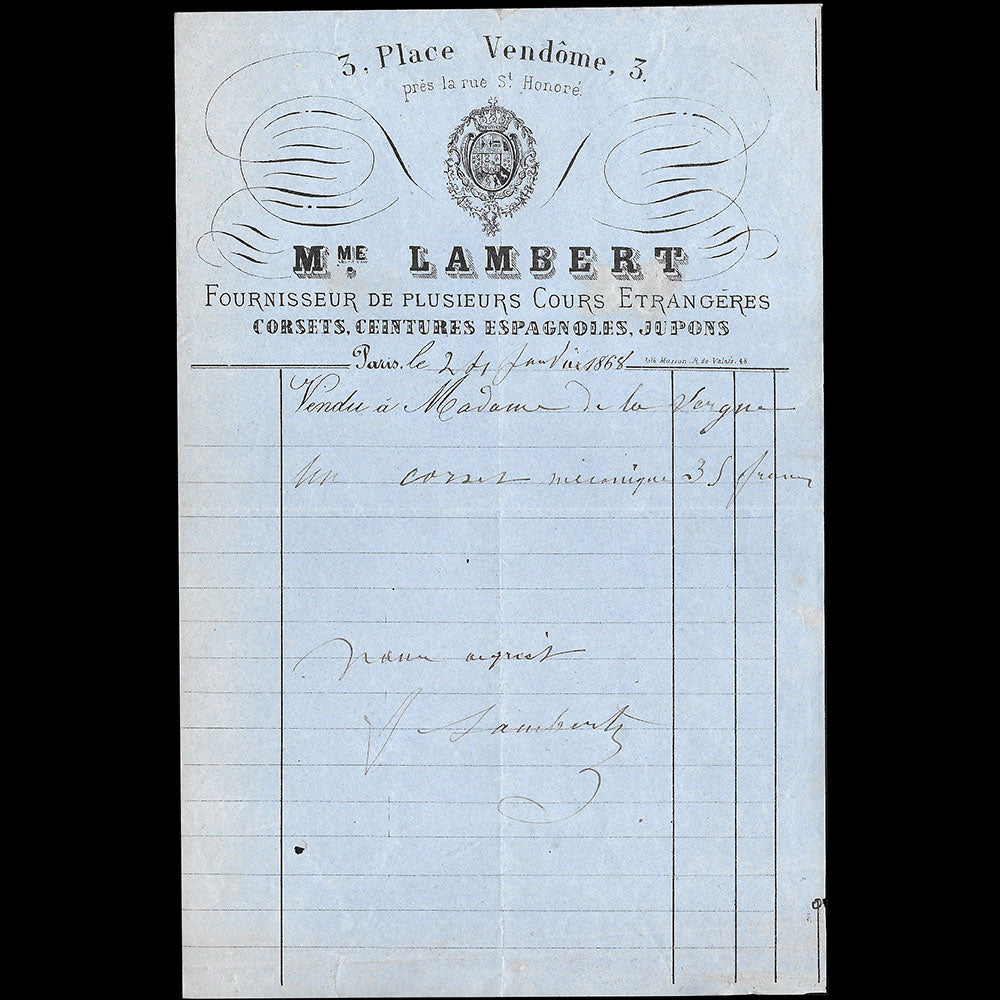 3, Place Vendôme, 3.
près la rue St. Honoré.
MME. LAMBERT
FOURNISSEUR DE PLUSIEURS COURS ETRANGÈRES
CORSETS, CEINTURES ESPAGNOLES, JUPONS
Paris, le 2 Janvier 1868
Lith. Masson. R. de Valois. 48
Vendu à Madame de la Vergne
un corset mécanique 35 francs
pour acquit
Lambert